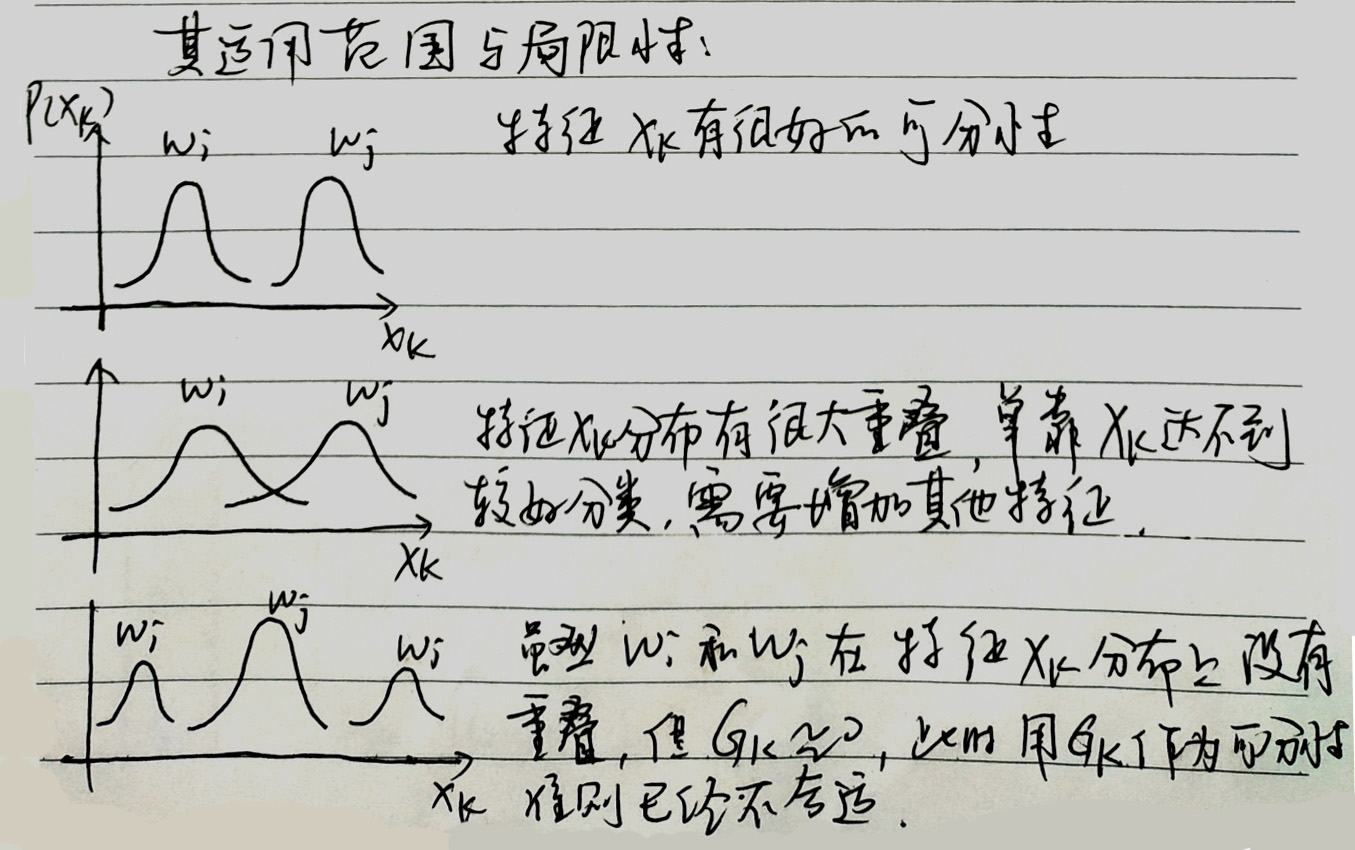 其适用范围与局限性:
P(XK)
wi wj
特征 XK 有很好的可分性
XK
wi wj
特征XK分布有很大重叠,单靠 XK达不到
较好分类,需要增加其他特征.
XK
wi wj wi
虽然 wi 和 wj 在特征 XK 分布上没有
重叠,但 GK≈0,此时用GK作为可分性
XK
准则已经不合适.